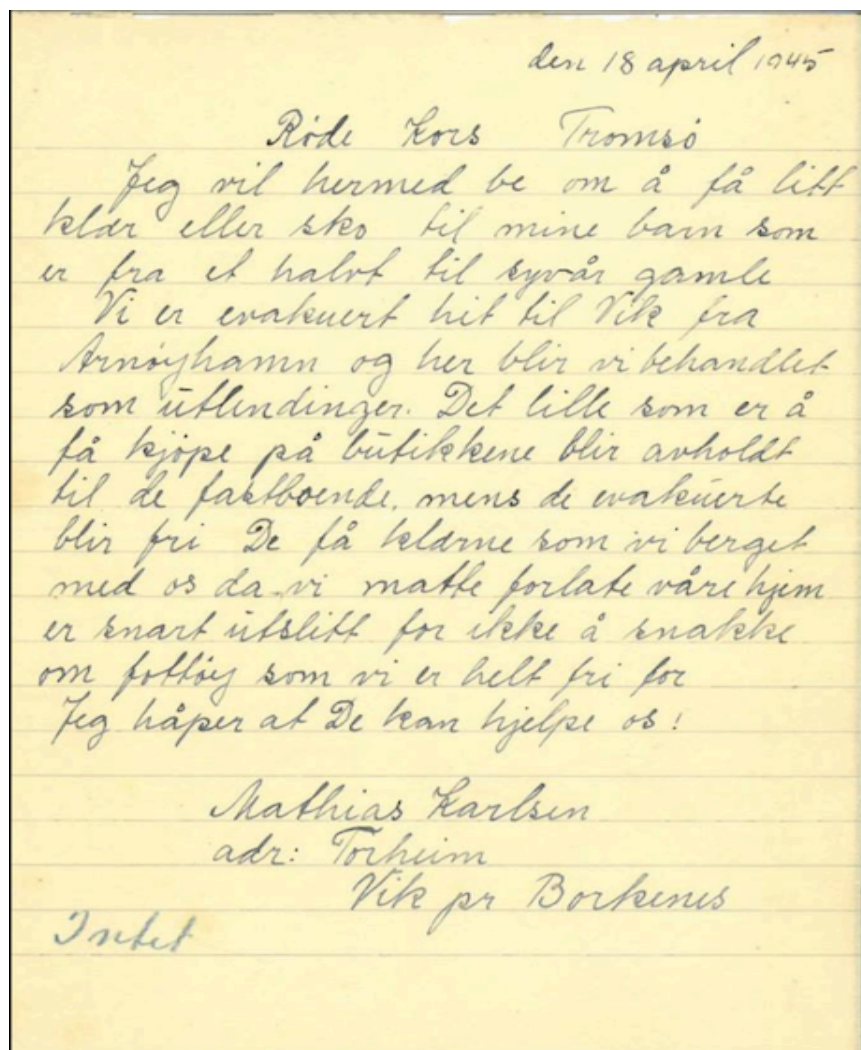 den 18 april 1945
Røde Kors Tromsø
Jeg vil hermed be om å få litt
klær eller sko til mine barn som
er fra et halvt til syvår gamle
Vi er evakuert hit til Vik fra
Arnøyhamn og her blir vi behandlet
som utlendinger. Det lille som er å
få kjøpe på butikkene blir avholdt
til de fastboende, mens de evakuerte
blir fri De få klærne som vi berget
med os da vi matte forlate våre hjem
er snart utslitt for ikke å snakke
om fottøy som vi er helt fri for
Jeg håper at De kan hjelpe os!
Mathias Karlsen
adr: Torheim
Vik pr Borkenes
Intet